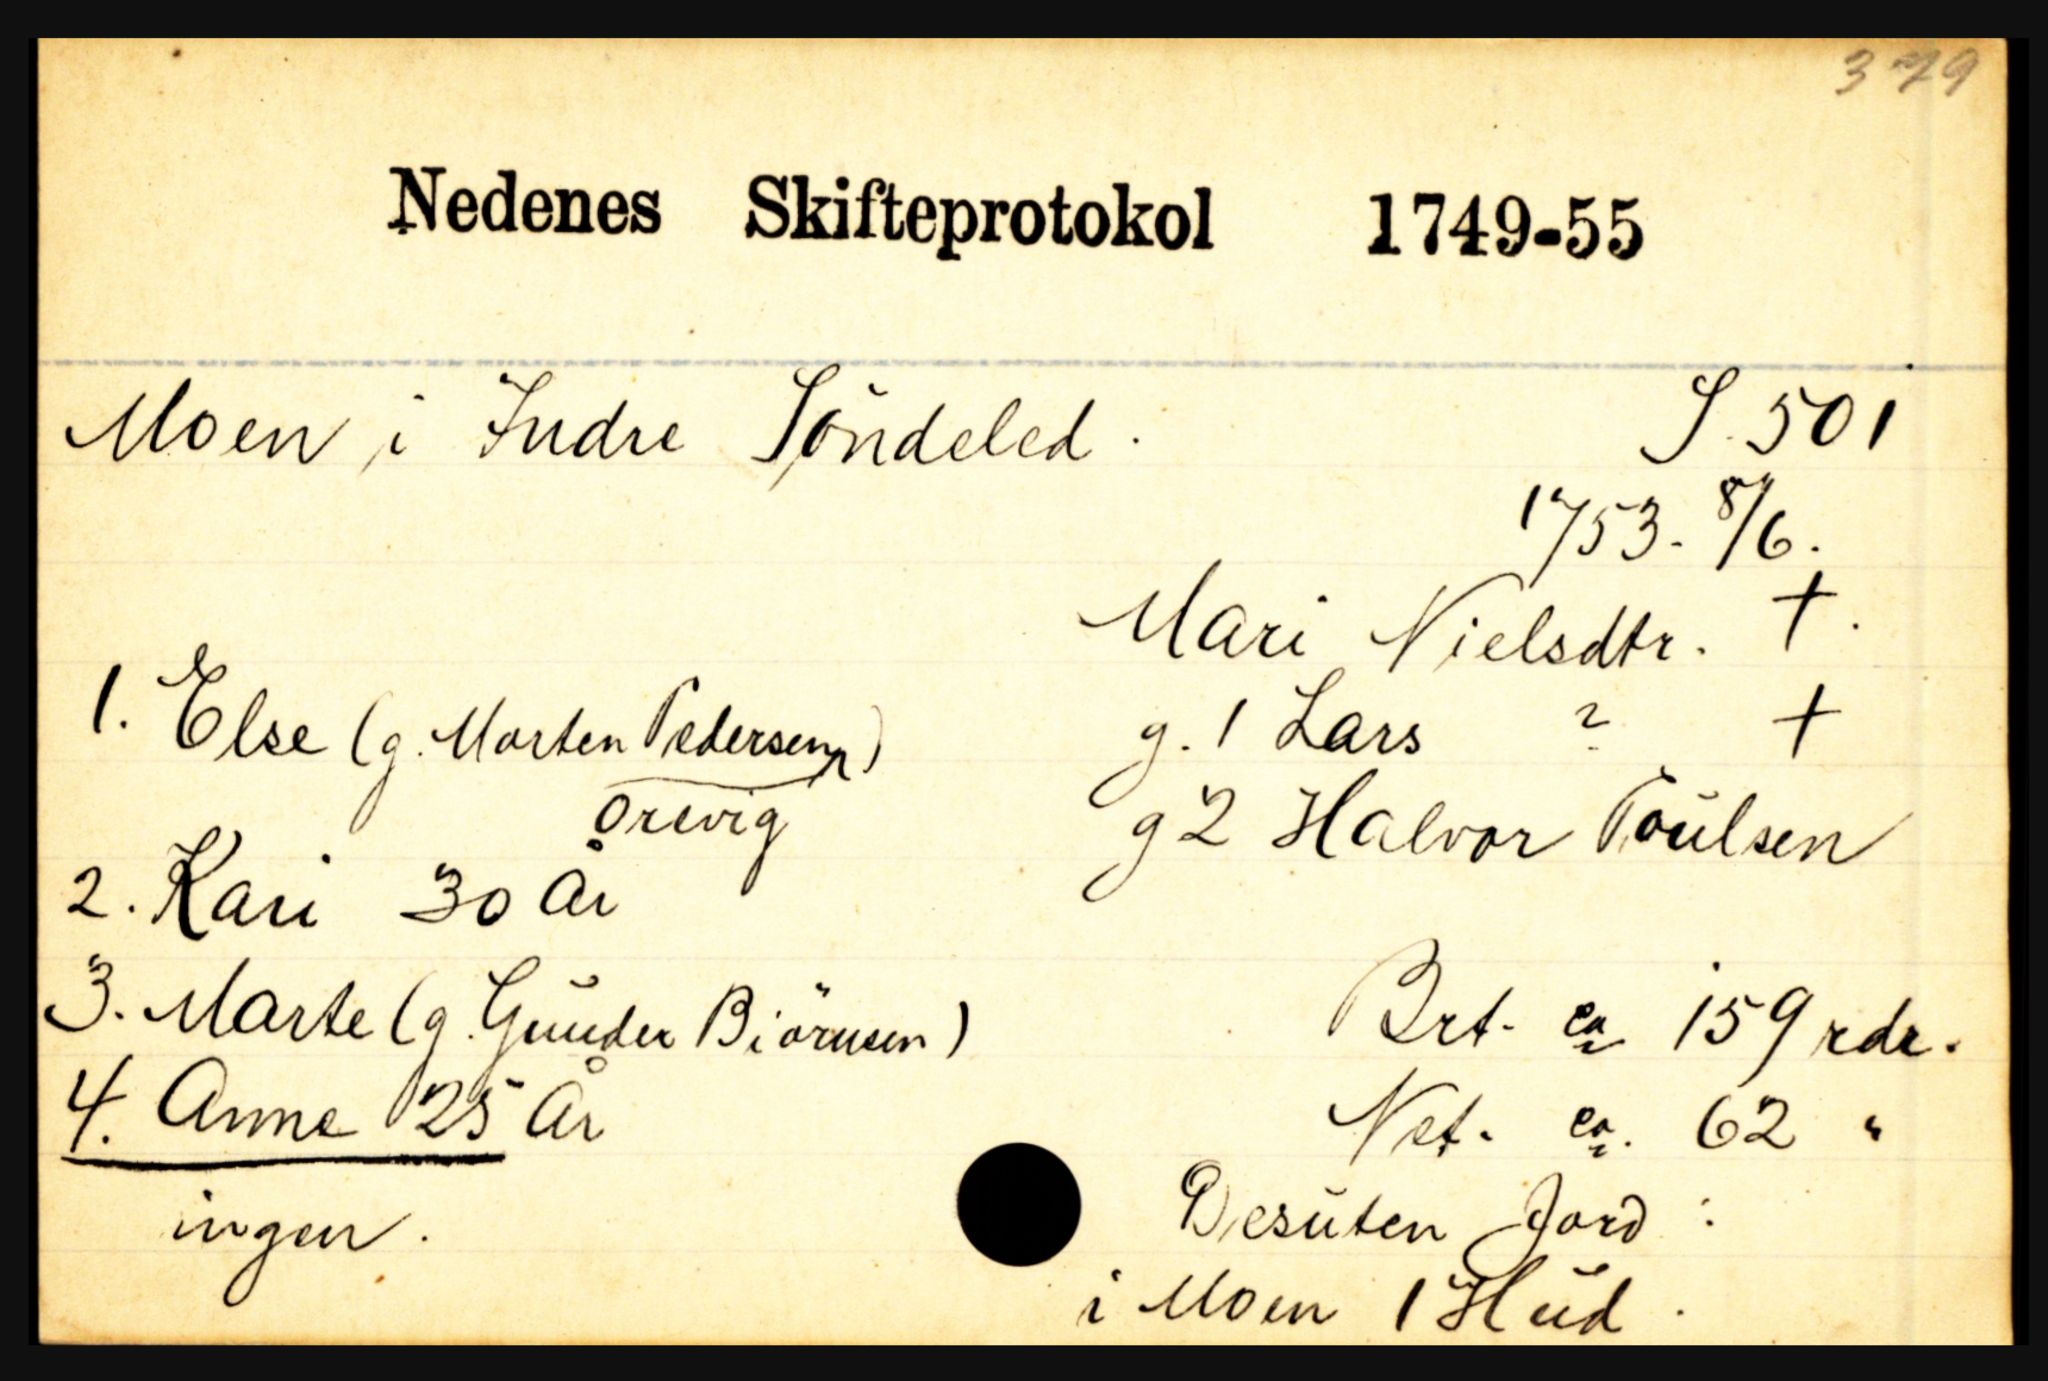 379
Nedenes Skifteprotokol 1749-55
Moen i Indre Söndeled. S. 501
1753. 8/6.
Mari Nielsdtr. +.
1. Else (g. Morten Pedersen) g. 1 Lars ? +
Orevig g 2 Halvor Poŭlsen
2. Kari 30 År
3. Marte (g. Gŭnder Biörnsen) Brt. ca 159 rdr.
4. Anne 25 År Net. ca. 62 "
ingen. Desŭten Jord :
i Moen 1 Hŭd.